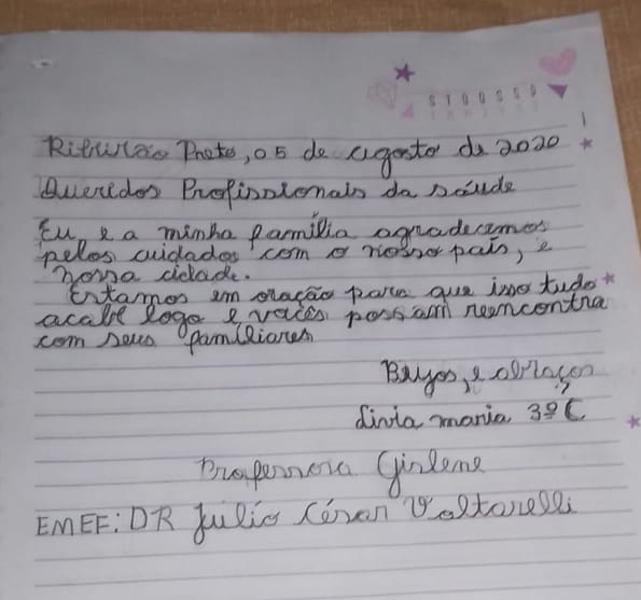 S T Q Q S S D
Ribeirão Preto, 05 de agosto de 2020
Queridos Profissionais da saúde
Eu, e a minha família agradecemos
pelos cuidados com o nosso país, e
nossa cidade.
Estamos em oração para que isso tudo
acabe logo e vocês possam reencontra
com seus familiares
Beijos, e abraços
Livia maria 3º C
Professora Gislene
EMEF: DR Júlio César Voltarelli